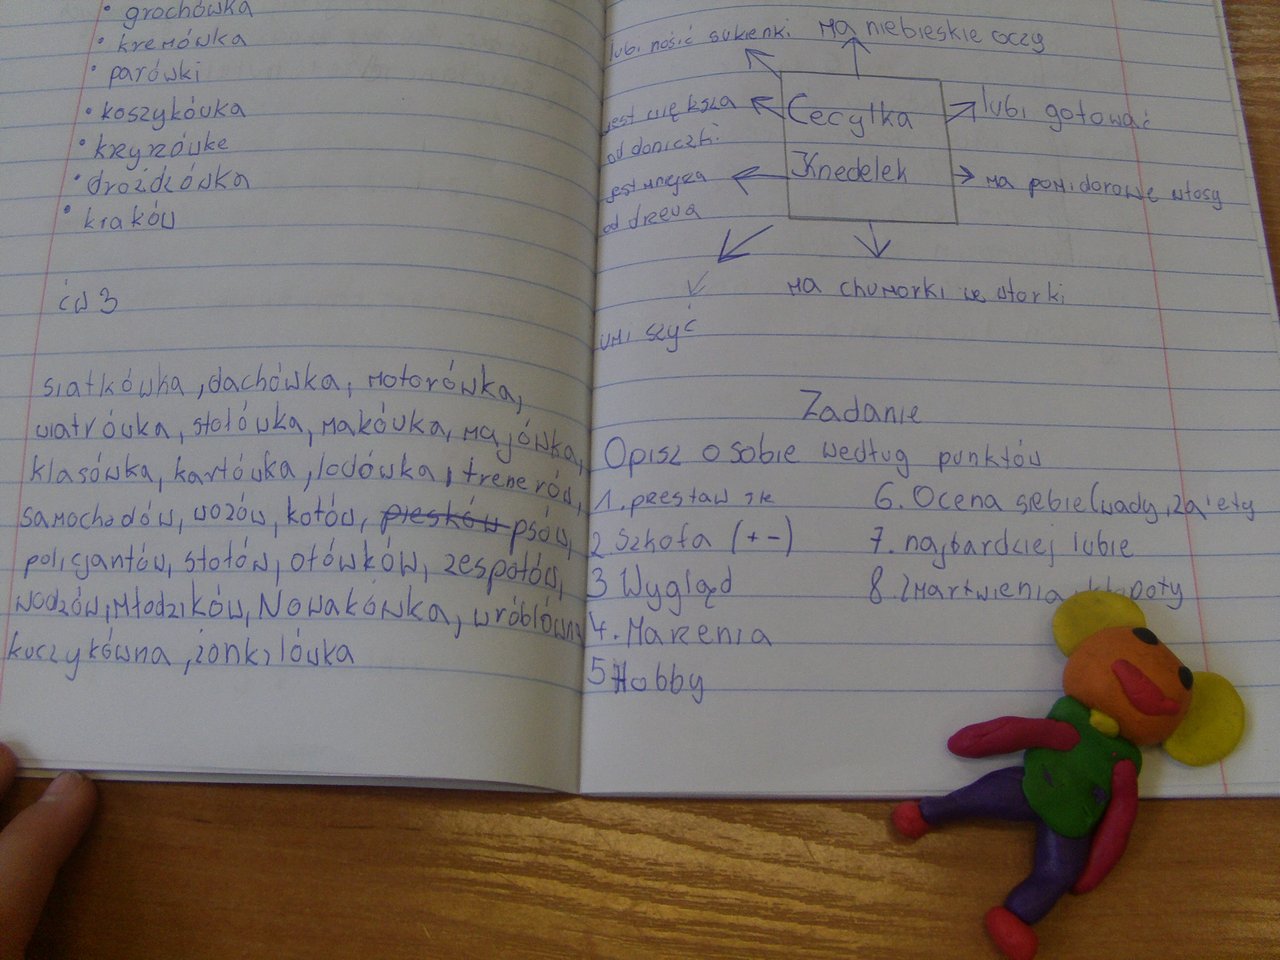 • grochówka
• kremówka
• parówki
• koszykówka
• krzyżówke
• drożdżówka
• kraków
ćw 3
siatkówka, dachówka, motorówka,
wiatrówka, stołówka, makówka, majówka,
klasówka, kartówka, lodówka, trenerów,
samochodów, wozów, kotów, piesków psów,
policjantów, stołów, ołówków, zespołów,
wodzów, Młodzików, Nowakówka, wróblówna
kuczykówna, żonkilówka
lubi nosić sukienki
Ma niebieskie oczy
jest większa
od doniczki
Cecylka
Knedelek
lubi gotować
jest mniejsza
od drzewa
Ma pomidorowe włosy
Ma chumorki we wtorki
umi szyć
Zadanie
Opisz o sobie według punktów
1. przestaw się
2 Szkoła (+ -)
3 Wygląd
4. Marzenia
5 Hobby
6. Ocena siebie (wady, zalety
7. najbardziej lubie
8. Zmartwienia, kłopoty